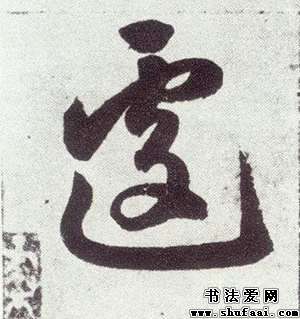 遽
书法爱网
www.shufaai.com